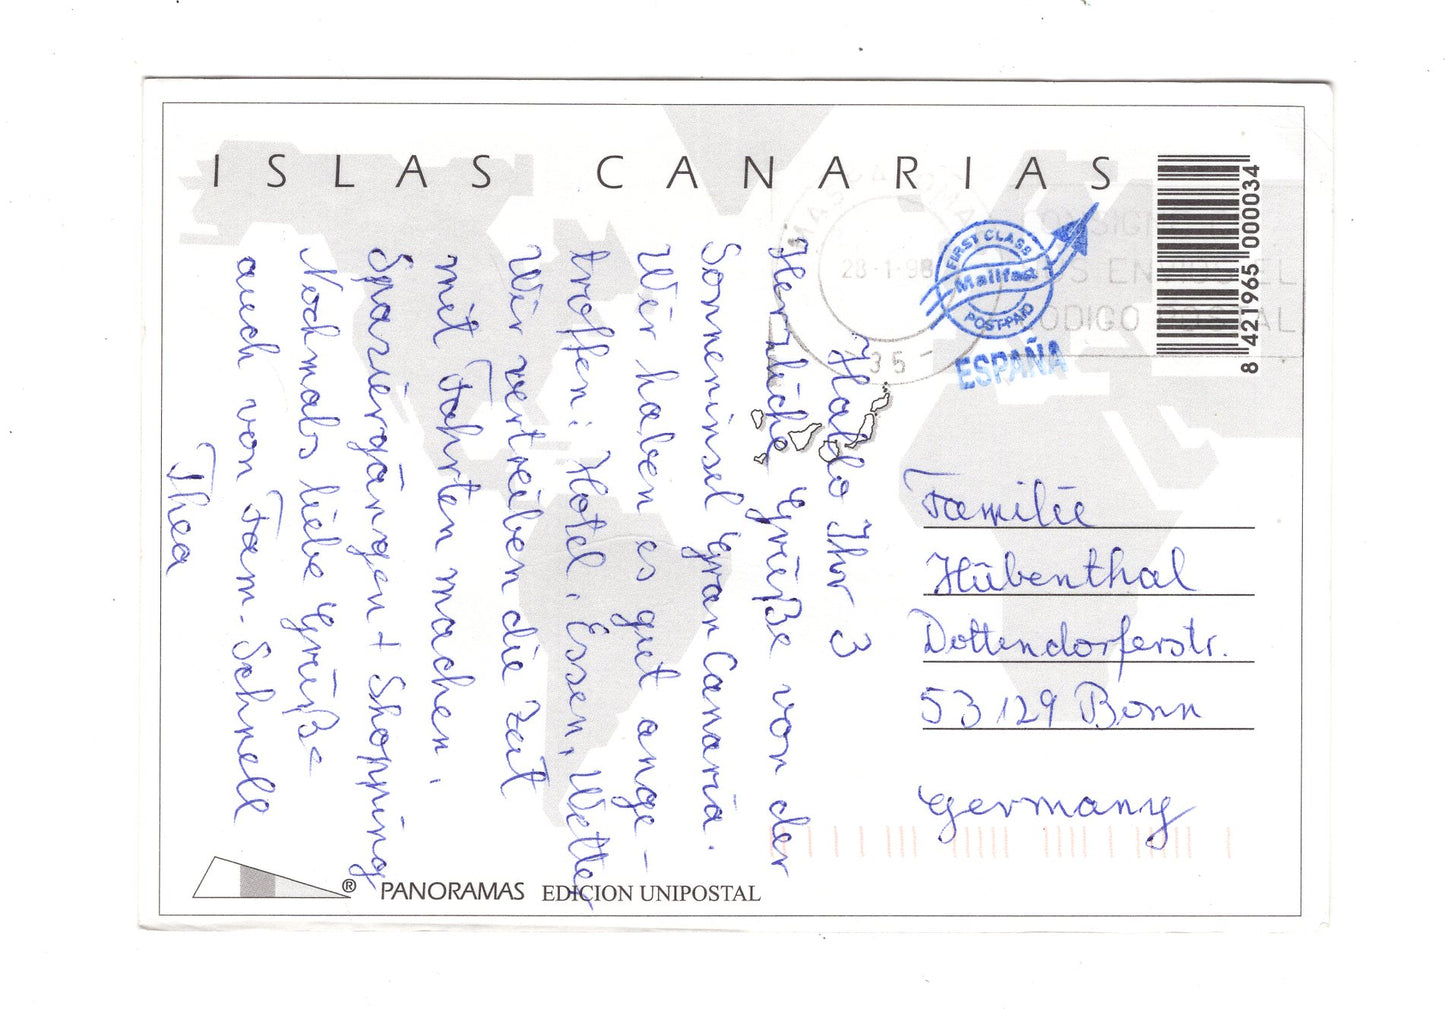 ISLAS CANARIAS
8 421965 000034
28-1-98
35
FIRST CLASS
Mailfast
POSTPAID
ESPAÑA
CODIGO POSTAL
Hallo Ihr 3
Herzliche Grüße von der
Sonneninsel Gran Canaria.
Wir haben es gut ange-
troffen: Hotel, Essen, Wetter
Wir vertreiben die Zeit
mit Fahrten machen,
Spaziergängen + Shopping
Nochmals liebe Grüße
auch von Fam. Schnell
Thea
Familie
Hübenthal
Dottendorferstr.
53129 Bonn
Germany
® PANORAMAS EDICION UNIPOSTAL